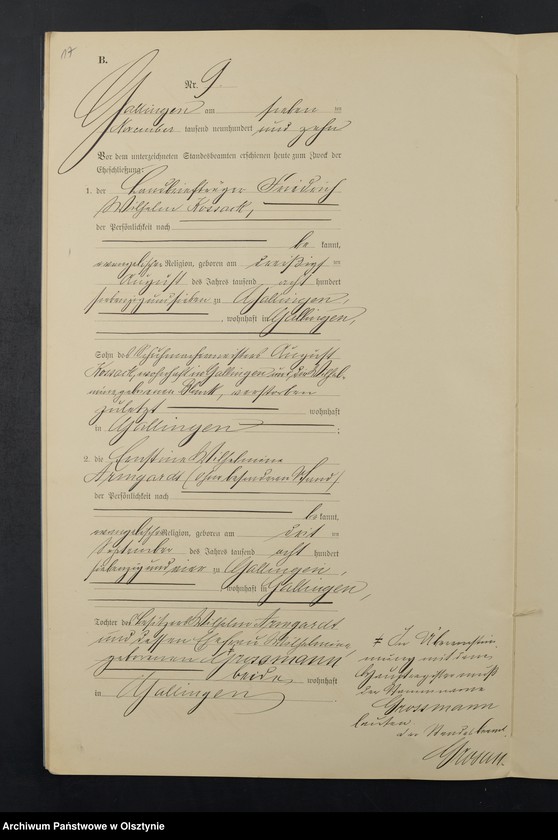 17
B.
Nr. 9
Gallingen am sieben ten
November tausend neunhundert und zehn
Vor dem unterzeichneten Standesbeamten erschienen heute zum Zweck der
Eheschließung:
1. der Landbriefträger Friedrich
Wilhelm Kossack,
der Persönlichkeit nach
be kannt,
evangelischer Religion, geboren am dreißigs ten
August des Jahres tausend acht hundert
siebenzig und sieben zu Gallingen,
, wohnhaft in Gallingen,
Sohn des Schuhmachermeisters August
Kossack, wohnhaft in Gallingen und der Wilhel-
mine geborenen, verstorben
zuletzt wohnhaft
in Gallingen ;
2. die Ernstine Wilhelmine
Armgardt (ohne besonderen Stand)
der Persönlichkeit nach
be kannt,
evangelischer Religion, geboren am drit ten
September des Jahres tausend acht hundert
siebenzig und vier zu Gallingen,
, wohnhaft in Gallingen,
Tochter des Besitzers Wilhelm Armgardt
und dessen Ehefrau Wilhelmine,
geborenen Grossmann
beide wohnhaft
in Gallingen .
≠ In Übereinstim-
mung mit dem
Hauptregister muß
der Stammname
Grossmann
lauten
der Standesbeamt.
Archiwum Państwowe w Olsztynie